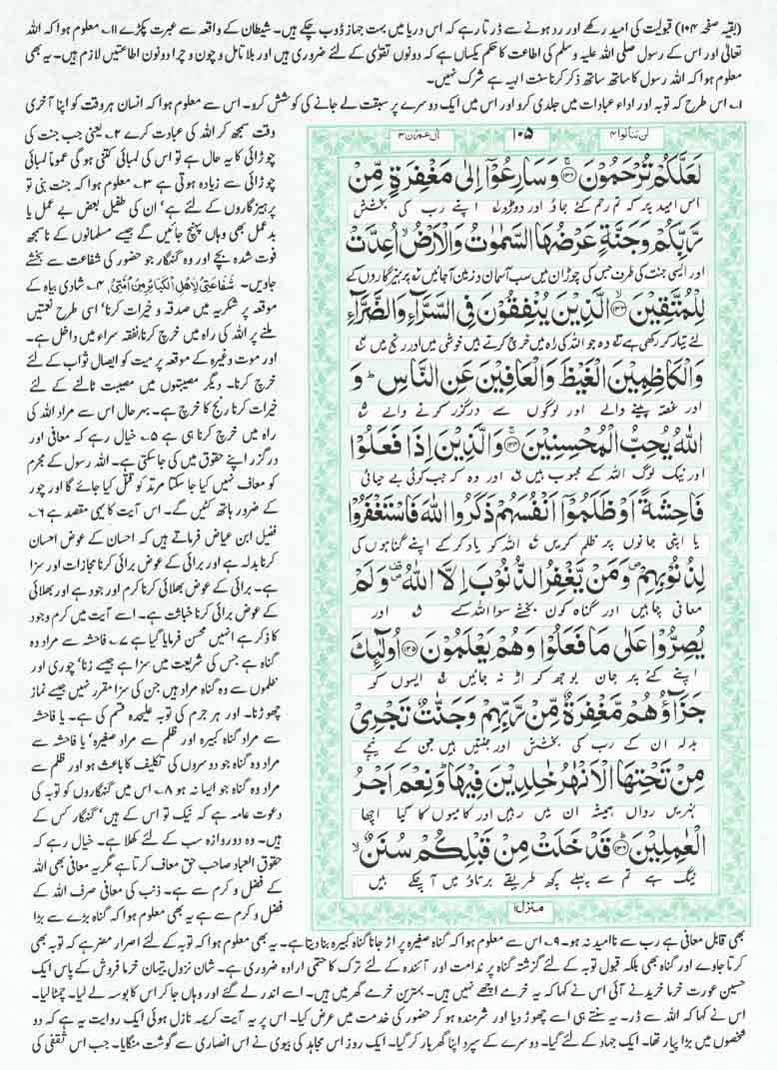 (بقیہ صفحہ ۱۰۴) قبولیت کی امید رکھے اور رد ہونے سے ڈرتا رہے کہ اس دریا میں بہت جہاز ڈوب چکے ہیں۔ شیطان کے واقعہ سے عبرت پکڑے ۱۱۔ معلوم ہوا کہ اللہ
تعالٰی اور اس کے رسول صلی اللہ علیہ وسلم کی اطاعت کا حکم یکساں ہے کہ دونوں تقوٰی کے لئے ضروری ہیں اور بلا تامل و چون و چرا دونوں اطاعتیں لازم ہیں۔ یہ بھی
معلوم ہوا کہ اللہ رسول کا ساتھ ساتھ ذکر کرنا سنت الہیہ ہے شرک نہیں۔
۱۔ اس طرح کہ توبہ اور اداء عبادات میں جلدی کرو اور اس میں ایک دوسرے پر سبقت لے جانے کی کوشش کرو۔ اس سے معلوم ہوا کہ انسان ہر وقت کو اپنا آخری
وقت سمجھ کر اللہ کی عبادت کرے ۲۔ یعنی جب جنت کی
چوڑائی کا یہ حال ہے تو اس کی لمبائی کتنی ہو گی عموماً لمبائی
چوڑائی سے زیادہ ہوتی ہے ۳۔ معلوم ہوا کہ جنت بنی تو
پرہیزگاروں کے لئے ہے' ان کی طفیل بعض بے عمل یا
بدعمل بھی وہاں پہنچ جائیں گے جیسے مسلمانوں کے ناسمجھ
فوت شدہ بچے اور وہ گنہگار جو حضور کی شفاعت سے بخشے
جاویں۔ شَفَاعَتِیْ لِاَھْلِ الْکَبَائِرِ مِنْ اُمَّتِیْ ۴۔ شادی بیاہ کے
موقعہ پر شکریہ میں صدقہ و خیرات کرنا' اسی طرح نعمتیں
ملنے پر اللہ کی راہ میں خرچ کرنا، نفقہ سراء میں داخل ہے۔
اور موت وغیرہ کے موقعہ پر میت کو ایصال ثواب کے لئے
خرچ کرنا۔ دیگر مصیبتوں میں مصیبت ٹالنے کے لئے
خیرات کرنا رنج کا خرچ ہے۔ بہرحال اس سے مراد اللہ کی
راہ میں خرچ کرنا ہی ہے ۵۔ خیال رہے کہ معافی اور
درگزر اپنے حقوق میں کی جا سکتی ہے۔ اللہ رسول کے مجرم
کو معاف نہیں کیا جا سکتا مرتد کو قتل کیا جائے گا اور چور
کے ضرور ہاتھ کٹیں گے۔ اس آیت کا یہی مقصد ہے ۶۔
فضیل ابن عیاض فرماتے ہیں کہ احسان کے عوض احسان
کرنا بدلہ ہے اور برائی کے عوض برائی کرنا مجازات اور سزا
ہے۔ برائی کے عوض بھلائی کرنا کرم اور جود ہے اور بھلائی
کے عوض برائی کرنا خباثت ہے۔ اسے آیت میں کرم وجود
کا ذکر ہے انہیں محسن فرمایا گیا ہے ۷۔ فاحشہ سے مراد وہ
گناہ ہے جس کی شریعت میں سزا ہے جیسے زنا' چوری اور
ظلموں سے وہ گناہ مراد ہیں جن کی سزا مقرر نہیں جیسے نماز
چھوڑنا۔ اور ہر جرم کی توبہ علیحدہ قسم کی ہے۔ یا فاحشہ
سے مراد گناہ کبیرہ اور ظلم سے مراد صغیرہ' یا فاحشہ سے
مراد وہ گناہ جو دوسروں کی تکلیف کا باعث ہو اور ظلم سے
مراد وہ گناہ جو ایسا نہ ہو ۸۔ اس میں گنہگاروں کو توبہ کی
دعوت عامہ ہے کہ نیک تو اس کے ہیں' گنہگار کس کے
ہیں۔ وہ دروازہ سب کے لئے کھلا ہے۔ خیال رہے کہ
حقوق العباد صاحب حق معاف کرتا ہے مگر یہ معافی بھی اللہ
کے فضل و کرم سے ہے۔ ذنب کی معافی صرف اللہ کے
فضل و کرم سے ہے یہ بھی معلوم ہوا کہ گناہ بڑے سے بڑا
لن تنالوا۴
۱۰۵
اٰل عمرٰن۳
لَعَلَّكُمْ تُرْحَمُوْنَ ﴿۱۳۲﴾ وَسَارِعُوْۤا اِلٰى مَغْفِرَةٍ مِّنْ
اس امید پر کہ تم رحم کئے جاؤ اور دوڑو ۱ اپنے رب کی بخشش
رَّبِّكُمْ وَجَنَّةٍ عَرْضُهَا السَّمٰوٰتُ وَالْاَرْضُ ۙ اُعِدَّتْ
اور ایسی جنت کی طرف جس کی چوڑان میں سب آسمان و زمین آجائیں ۲ پرہیزگاروں کے
لِلْمُتَّقِيْنَ ﴿۱۳۳﴾ الَّذِيْنَ يُنْفِقُوْنَ فِى السَّرَّآءِ وَالضَّرَّآءِ
لئے تیار کر رکھی ہے ۳ وہ جو اللہ کی راہ میں خرچ کرتے ہیں خوشی میں اور رنج میں ۴
وَالْكَاظِمِيْنَ الْغَيْظَ وَالْعَافِيْنَ عَنِ النَّاسِ ؕ وَ
اور غصہ پینے والے اور لوگوں سے درگزر کرنے والے ۵
اللّٰهُ يُحِبُّ الْمُحْسِنِيْنَ ﴿۱۳۴﴾ وَالَّذِيْنَ اِذَا فَعَلُوْا
اور نیک لوگ اللہ کے محبوب ہیں ۶ اور وہ کہ جب کوئی بے حیائی
فَاحِشَةً اَوْ ظَلَمُوْۤا اَنْفُسَهُمْ ذَكَرُوا اللّٰهَ فَاسْتَغْفَرُوْا
یا اپنی جانوں پر ظلم کریں ۷ اللہ کو یاد کر کے اپنے گناہوں کی
لِذُنُوْبِهِمْ ۪ وَمَنْ يَّغْفِرُ الذُّنُوْبَ اِلَّا اللّٰهُ ۪ وَلَمْ
معافی چاہیں اور گناہ کون بخشے سوا اللہ کے ۸ اور
يُصِرُّوْا عَلٰى مَا فَعَلُوْا وَهُمْ يَعْلَمُوْنَ ﴿۱۳۵﴾ اُولٰٓئِكَ
اپنے کئے پر جان بوجھ کر اڑ نہ جائیں ۹ ایسوں کو
جَزَآؤُهُمْ مَّغْفِرَةٌ مِّنْ رَّبِّهِمْ وَجَنّٰتٌ تَجْرِىْ
بدلہ ان کے رب کی بخشش اور جنتیں ہیں جن کے نیچے
مِنْ تَحْتِهَا الْاَنْهٰرُ خٰلِدِيْنَ فِيْهَا ؕ وَنِعْمَ اَجْرُ
نہریں رواں ہمیشہ ان میں رہیں اور کامیوں کا کیا اچھا
الْعٰمِلِيْنَ ﴿۱۳۶﴾ قَدْ خَلَتْ مِنْ قَبْلِكُمْ سُنَنٌ ۙ
نیگ ہے تم سے پہلے کچھ طریقے برتاؤ میں آچکے ہیں
منزل۱
بھی قابل معافی ہے رب سے ناامید نہ ہو۔ ۹۔ اس سے معلوم ہوا کہ گناہ صغیرہ پر اڑ جانا گناہ کبیرہ بنا دیتا ہے۔ یہ بھی معلوم ہوا کہ توبہ کے لئے اصرار مضر ہے کہ توبہ بھی
کرتا جاوے اور گناہ بھی بلکہ قبول توبہ کے لئے گزشتہ گناہ پر ندامت اور آئندہ کے لئے ترک کا حتمی ارادہ ضروری ہے۔ شان نزول تیہان خرما فروش کے پاس ایک
حسین عورت خرما خریدنے آئی اس نے کہا کہ یہ خرمے اچھے نہیں ہیں۔ بہترین خرمے گھر میں ہیں۔ اسے اندر لے گئے اور وہاں جا کر اس کا بوسہ لے لیا۔ چمٹا لیا۔
اس نے کہا کہ اللہ سے ڈر۔ یہ سنتے ہی اسے چھوڑ دیا اور شرمندہ ہو کر حضور کی خدمت میں عرض کیا۔ اس پر یہ آیت کریمہ نازل ہوئی ایک روایت یہ ہے کہ دو
شخصوں میں بڑا پیار تھا۔ ایک جہاد کے لئے گیا۔ دوسرے کے سپرد اپنا گھر بار کر گیا۔ ایک روز اس مجاہد کی بیوی نے اس انصاری سے گوشت منگایا۔ جب اس ثقفی کی